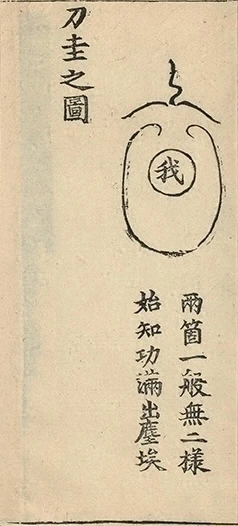 刀圭之圖
我
兩箇一般無二樣
始知功滿出塵埃